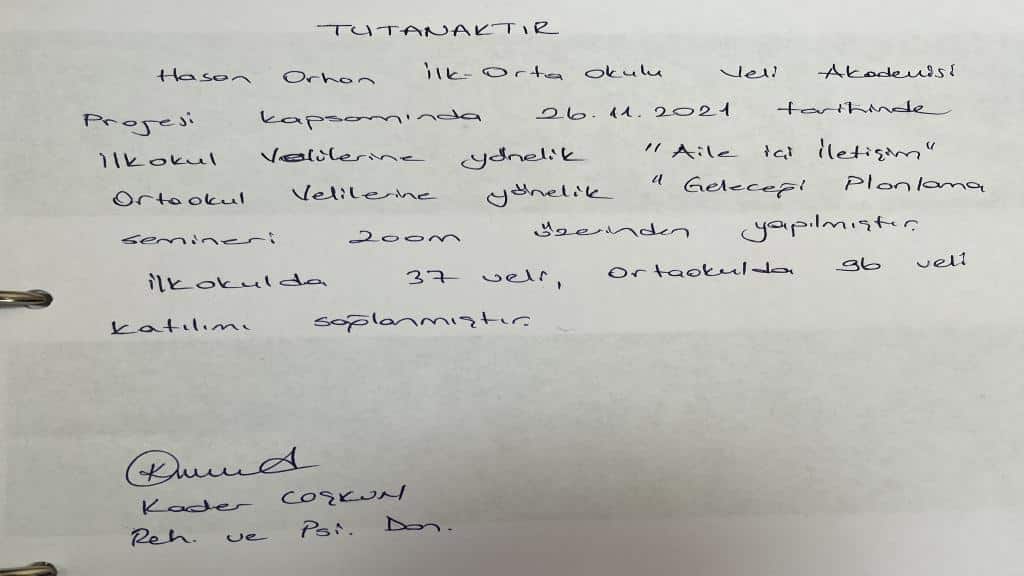 TUTANAKTIR
Hasan Orhan İlk-Orta Okulu Veli Akademisi
Projesi kapsamında 26.11.2021 tarihinde
İlkokul Velilerine yönelik "Aile içi İletişim"
Ortaokul Velilerine yönelik "Geleceği Planlama
semineri zoom üzerinden yapılmıştır.
İlkokulda 37 veli, ortaokulda 96 veli
katılımı sağlanmıştır.
Kader COŞKUN
Reh. ve Psi. Dan.